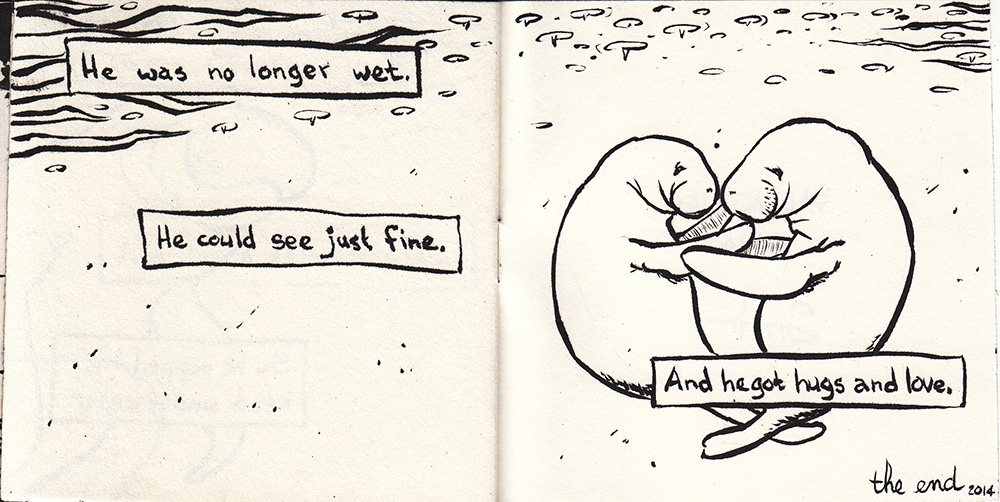 He was no longer wet.
He could see just fine.
And he got hugs and love.
the end 2014